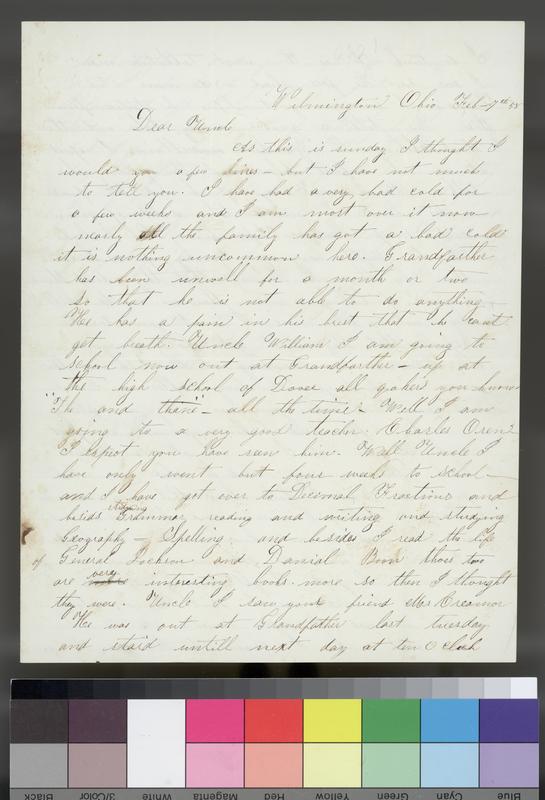 Wilmington Ohio Feb - 7th 58
Dear Uncle
As this is sunday I thought I
would you a few lines - but I have not much
to tell you. I have had a very bad cold for
a few weeks and I am most over it now
nearly all the family has got a bad cold
it is nothing uncommon here. Grandfarther
has been unwell for a month or two
so that he is not able to do anything
He has a pain in his brest that he cant
get breath. Uncle William I am going to
school now out at Grandfarther - up at
the high school of Dover all qakers you know
"The and thane - all the time - Well I am
going to a very good teacher. Charles Oren
I expect you have seen him. Well Uncle I
have only went but four weeks to school -
and I have got over to Decimal Fractions and
besids studying Grammar reading and writing and studying
Geography - Spelling. and besides I read the life
of General Jackson and Danial Boon thoes two
are very interesting books. more so then I thought
they were. Uncle I saw your friend Mr Creamor
He was out at Grandfather last tuesday
and staid untill next day at ten O clock
Black 3/Color White Magenta Red Yellow Green Cyan Blue